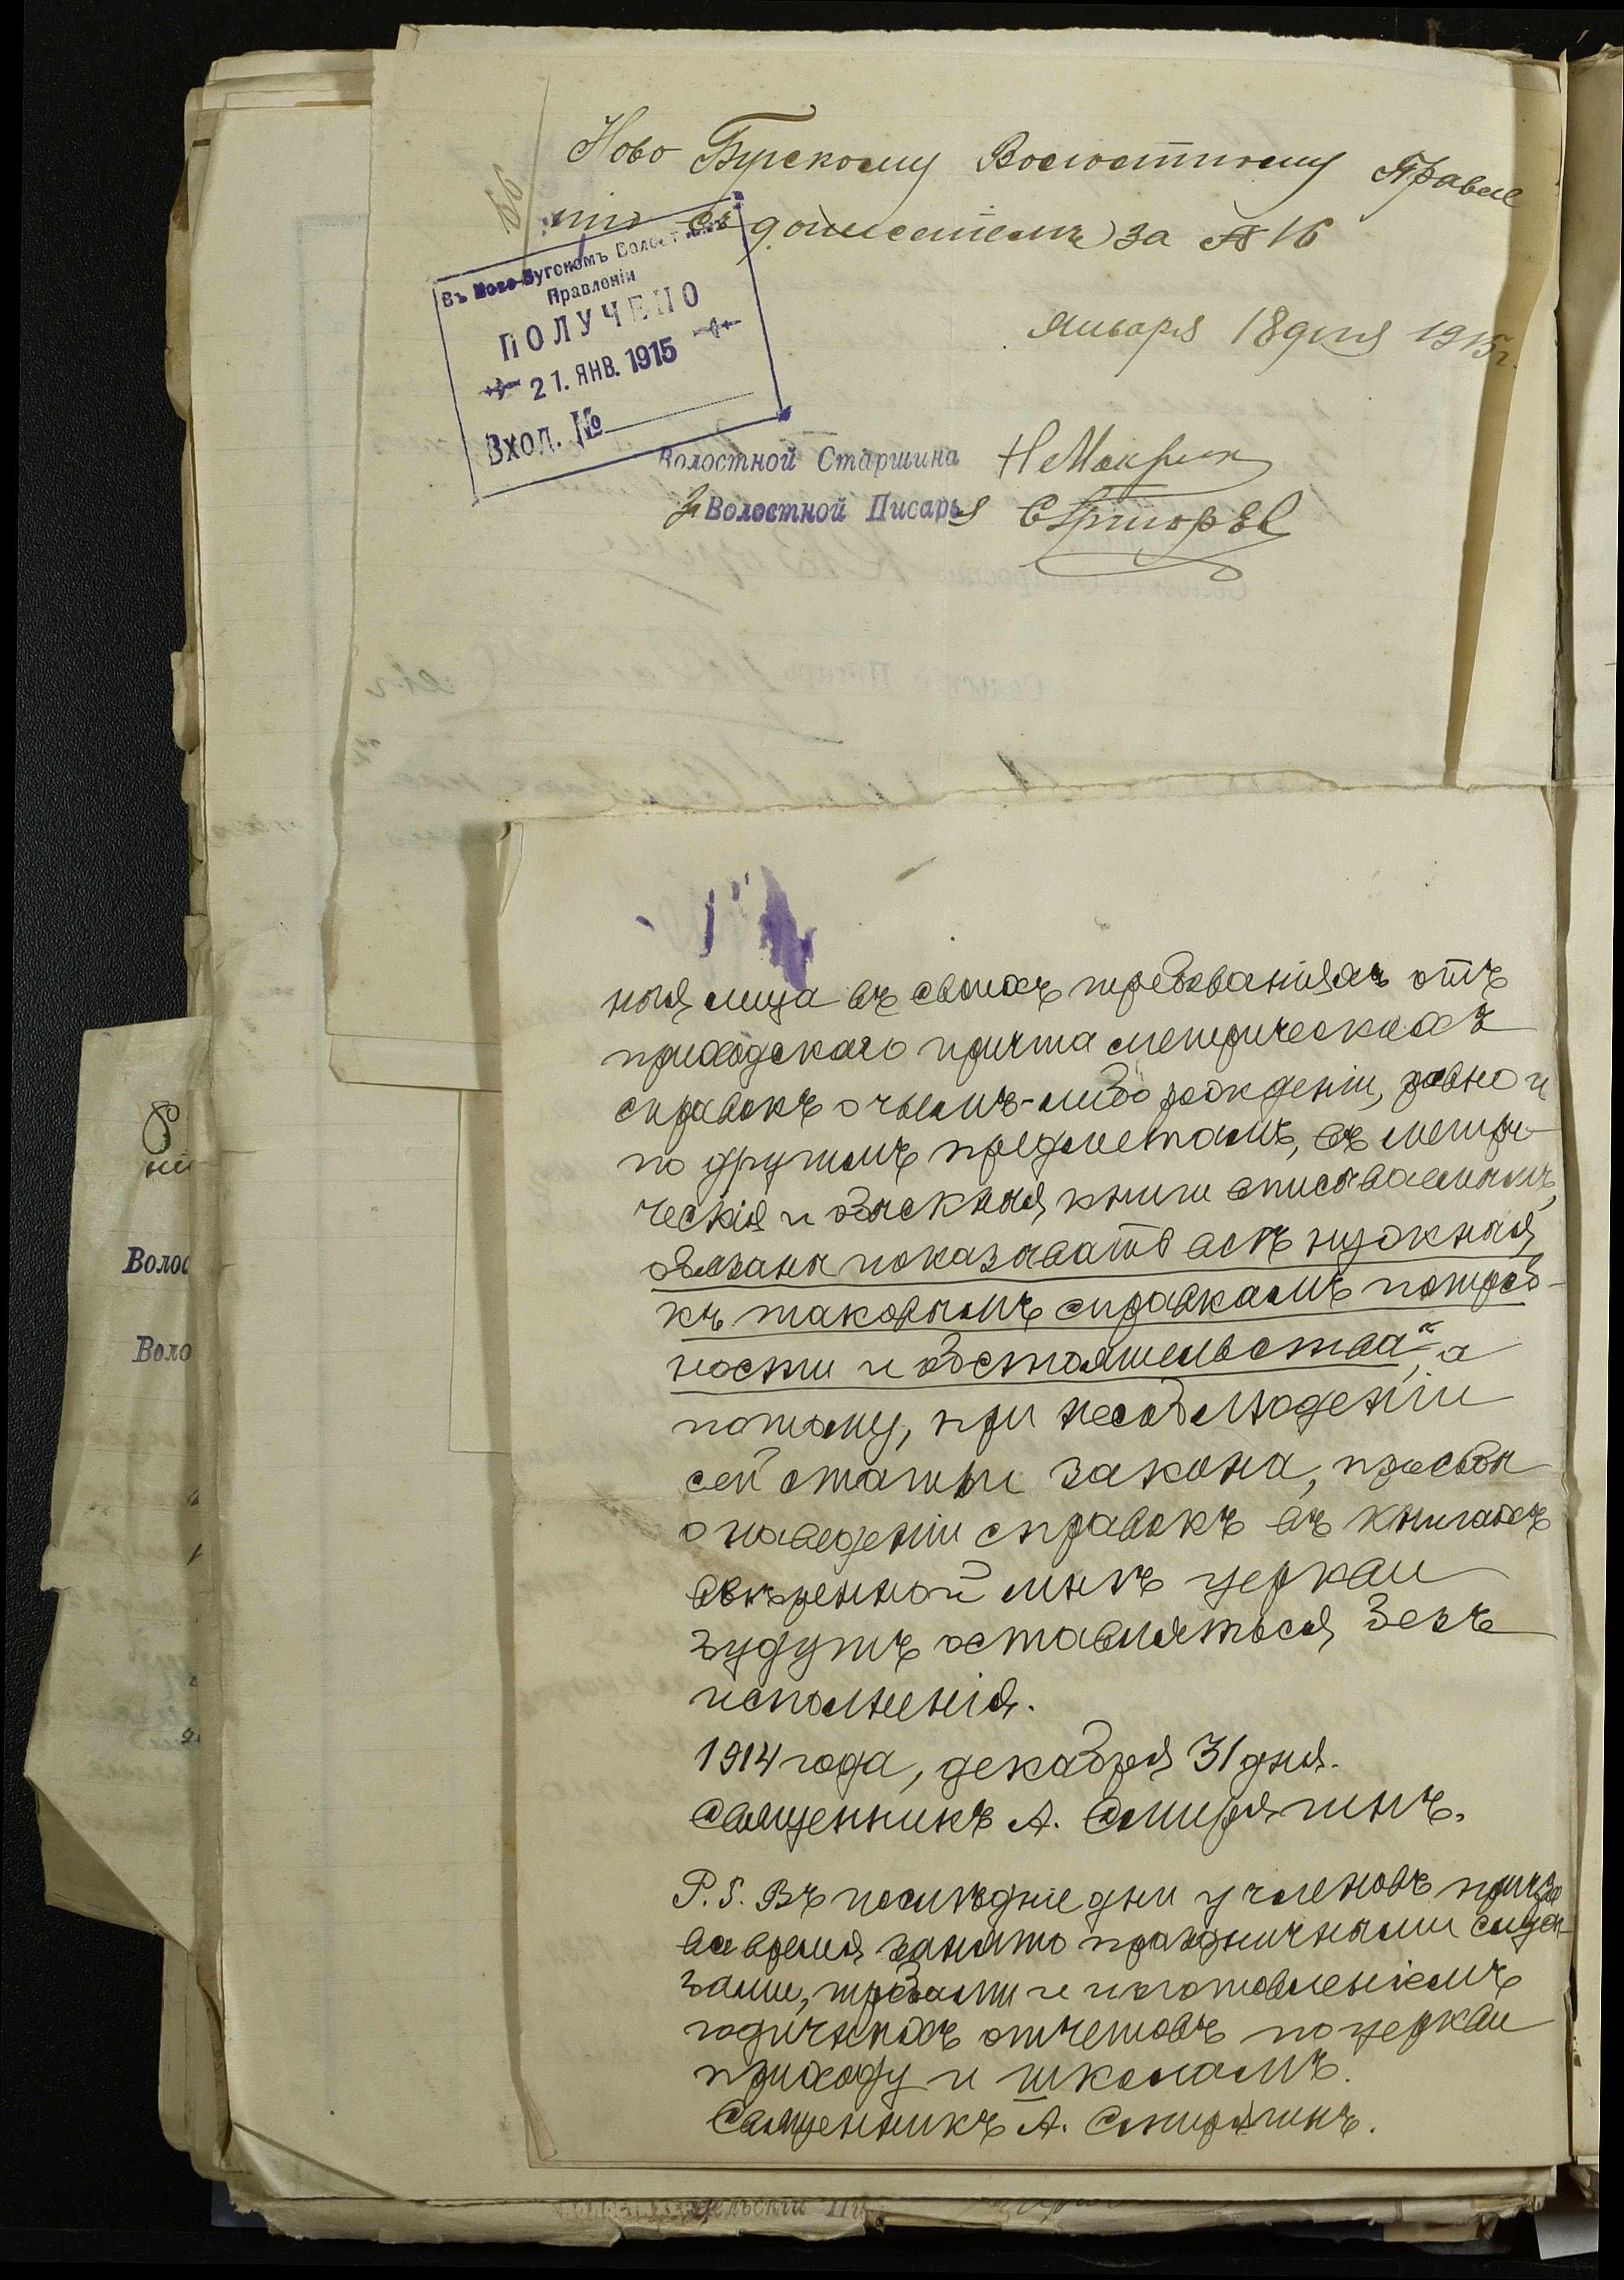 Ново Бугскому Волостному Правле
нію съ донесеніемъ за № 16
января 18 дня 1915 г.
Въ Ново-Бугскомъ Волостномъ
Правленіи
ПОЛУЧЕНО
21. ЯНВ. 1915
Вход. №
Волостной Старшина
Волостной Писарь
ныя лица въ своихъ требованіяхъ отъ
приходскаго причта метрическихъ
справокъ о чьемъ-либо рожденіи, равно и
по другимъ предметамъ, въ метри-
ческія и обыскныя книги вписываемымъ,
обязаны показывать всѣ нужныя
къ таковымъ справкамъ потреб-
ности и обстоятельства“, а
потому, при несоблюденіи
сей статьи закона, просьбы
о наведеніи справокъ въ книгахъ
ввѣренной мнѣ церкви
будутъ оставляться безъ
исполненія.
1914 года, декабря 31 дня.
Священникъ А. Смирягинъ.
P.S. Въ послѣдніе дни у членовъ причта
все время занято праздничными служ-
бами, требами и изготовленіемъ
годичныхъ отчетовъ по церкви
приходу и школамъ.
Священникъ А. Смирягинъ.
Волос
Воло